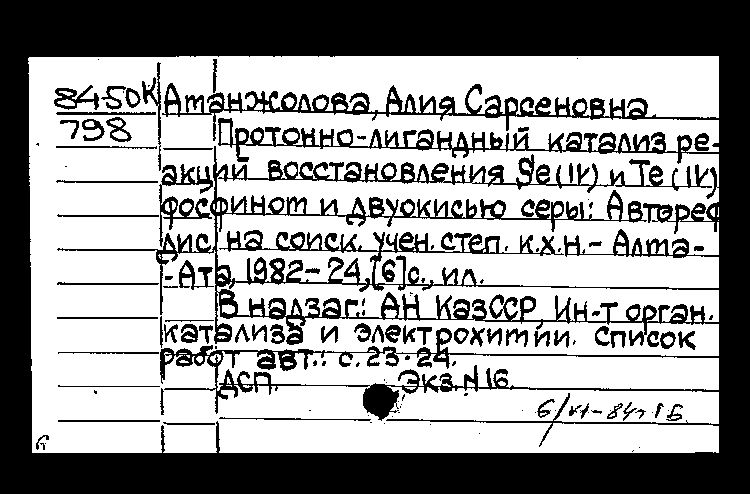 84-50К Атанжолова, Алия Сарсеновна.
798 Протонно-лигандный катализ ре-
акций восстановления Se(IV) и Te(IV)
фосфинот и двуокисью серы: Автореф
дис. на соиск. учен. степ. к.х.н.- Алма-
-Ата, 1982.- 24,[6]с., ил.
В надзаг.: АН КазССР, Ин-т орган.
катализа и электрохитии. Список
работ авт.: с.23-24.
ДСП. Экз.N 16.